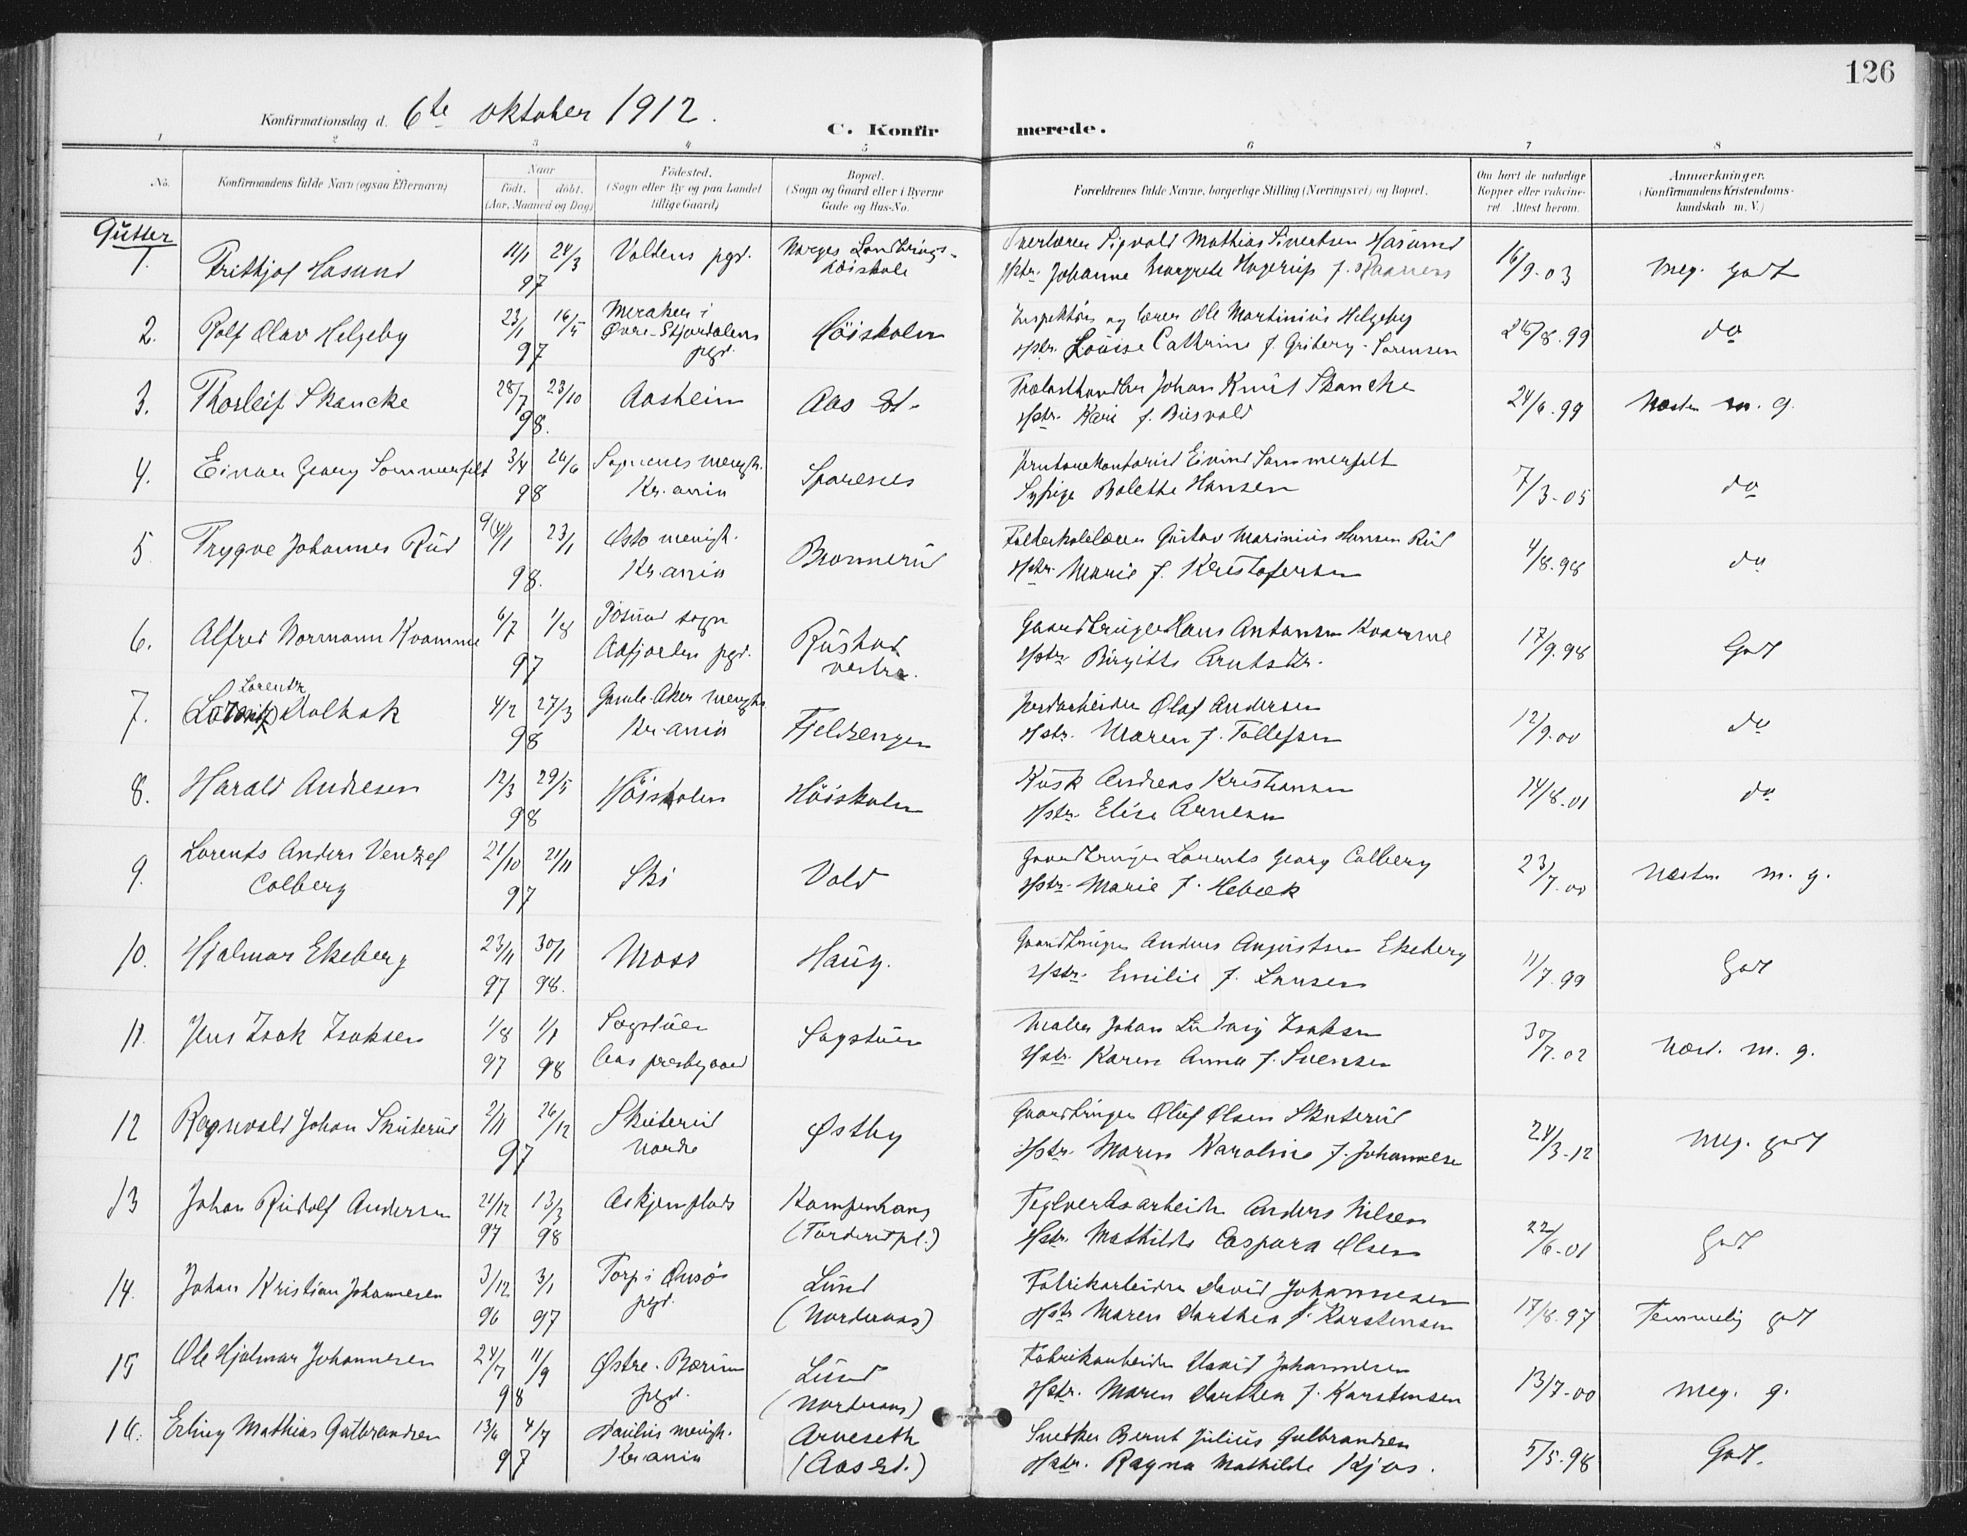 126
Konfirmationsdag d. 6te oktober 1912.
C. Konfirmerede.
1 2 3 4 5 6 7 8
No. Konfirmandens fulde Navn (ogsaa Efternavn) Naar født. døbt. (Aar, Maaned og Dag) Födested. (Sogn eller By og paa Landet tillige Gaard) Bopæl. (Sogn og Gaard eller i Byerne Gade og Hus-No. Forældrenes fulde Navne, borgerlige Stilling (Næringsvei) og Bopæl. Om havt de naturlige Kopper eller vakcineret Attest herom. Anmærkninger. (Konfirmandens Kristendomskundskab m. V.)
Gutter
1. Fritkjof Hasund 11/1 24/3 97 Voldens pgd. Norges Landbrugs-høiskole Sigvald Mathias Sivertsen Hasund
Hstr. Johanne Margrete Hagerup f. 16/9-03 Meg. godt
2. Rolf Olav Helgeby 23/1 16/5 97 Meraker i Øvre-Stjørdalens pgd. Høiskolen Inspektør og lærer Ole Martinius Helgeby
Hstr. Louise Cathrine f. Griberg-Sørensen 28/8.99 do
3. Thorleif Skancke 28/7 23/10 98. Aasheim Aas St. Trælasthandler Johan Knut Skancke
Hstr. Kari f. 24/6.99 Næsten m. g.
4. Einar Georg Sommerfelt 3/4 26/6 98 Sagenes menigh. Kr.ania Sparenes Eivind Sommerfelt
Sypige Bolette Hansen 7/3-05 do
5 Trygve Johannes Rud 9(4/1 23/1 98. Oslo menigh. Kr.ania Brønnerud Folkeskolelærer Gustav Marinius Hansen Rud
Hstr. Marie f. Kristofersen 4/8.98 do
6. Alfred Normann Kvamme 6/7 1/8 97 sogn Aafjorden pgd. Rustad vestre. Gaardbruger Hans Antonsen Kvamme
Hstr. Birgitte Arntsdr. 17/9.98 Godt
7. Lorentz Kolbak 4/2 27/3 98 Gamle Aker menigh. Kr.ania Fjeldsengen Jordarbeider Olaf Andersen
Hstr. Maren f. Tollefsen 12/9.00 do
8. Harald Andresen 12/3 29/5 98 Høiskolen Høiskolen Kusk Andreas Kristiansen
Hstr. Elise Arnesen 14/8.01 do
9. Lorents Anders Venzel Colberg 21/10 21/11 97 Ski Vold Gaardbruger Lorents Georg Colberg
Hstr. Marie f. Hebæk 23/7.00 Næsten m. g.
10. Hjalmar Ekeberg 23/11 97 30/1 98. Moss Haug. Gaardbruger Anders Augustsen Ekeberg
Hstr. Emilie f. Larsen 11/7.99 Godt
11. Jens Isak Isaksen 1/8 97 1/1 98 Sagstuen Aas prestegaard Sagstuen Maler Johan Ludvig Isaksen
Hstr. Karen Anna f. Svensen 30/7.02 Næst. m. g.
12 Ragnvald Johan Skuterud 2/11 26/12 97 Skuterud nordre Østby Gaardbruger Oluf Olsen Skuterud
Hstr. Maren Karoline f. Johannesen 24/3-12 Meg. godt
13 Johan Rudolf Andersen 21/12 97 13/3 98 Askjemplads Kampenhaug Teglverksarbeider Anders Nilsen
Hstr. Mathilde Caspara Olsen 22/6-01 Godt
14. Johan Kristian Johannesen 3/12 96 3/1 97 Torp i Onsø pgd. Lund (Norderaas) Fabrikarbeider David Johannesen
Hstr. Maren Dorthea f. Karstensen 17/8.97 Temmelig godt
15 Ole Hjalmar Johannesen 24/7 11/9 98 Østre-Bærum pgd. Lund (Norderaas) Fabrikarbeider David Johannesen
Hstr. Maren Dorthea f. Karstensen 13/7-00 Meg. g.
16. Erling Mathias Gulbrandsen 13/6 4/7 97 Paulus menigh. Kr.ania Arneseth (Aas St.) Snekker Bernt Julius Gulbrandsen
Hstr. Ragna Mathilde Kjos. 5/5-98 Godt.